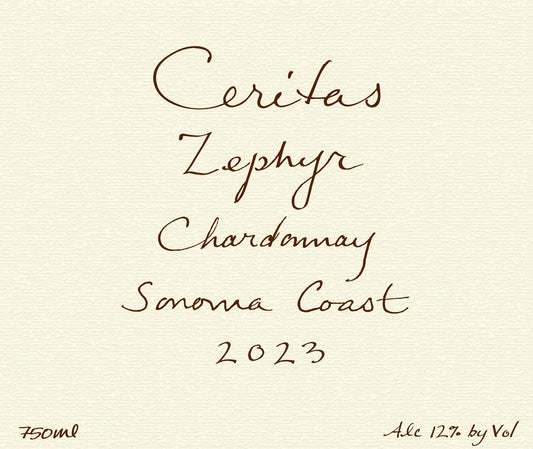 Ceritas
Zephyr
Chardonnay
Sonoma Coast
2023
750ml
Alc 12% by Vol